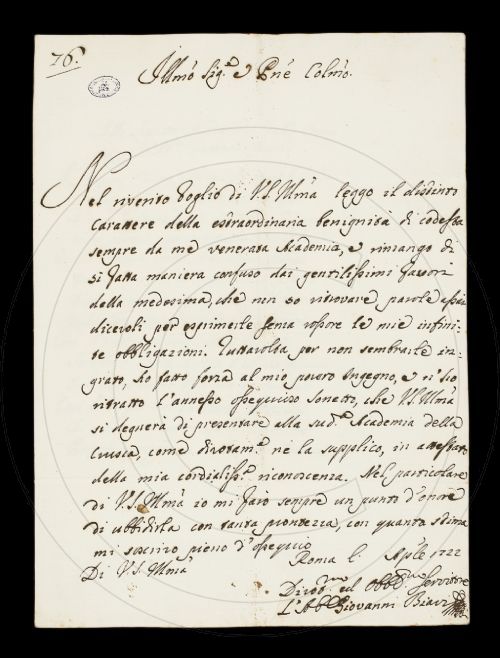 76.
Illmo Sig.r e Pne Colmo.
Nel riverito foglio di V.S. Illma leggo il distinto
carattere della estraordinaria benignità di codesta
sempre da me venerata Academia, e rimango di
sì fatta maniera confuso dai gentilissimi favori
della medesima, che non so ritrovare parole assai
dicevoli per esprimerle senza rossore le mie infini-
te obbligazioni. Tuttavolta per non sembrarle in-
grato, ho fatto forza al mio povero Ingegno, e n'ho
ritratto l'annesso ossequioso Sonetto, che V.S. Illma
si degnerà di presentare alla sud.a Academia della
Crusca, come divotam.e ne la supplico, in attestato
della mia cordialiss.a riconoscenza. Nel particolare
di V.S. Illma io mi farò sempre un punto d'onore
di ubbidirla con tanta prontezza, con quanta stima
mi soscrivo pieno d'ossequio
Di V.S. Illma
Roma li Aple 1722
Divot.mo ed Obb.mo Servitore
L'Ab.e Giovanni